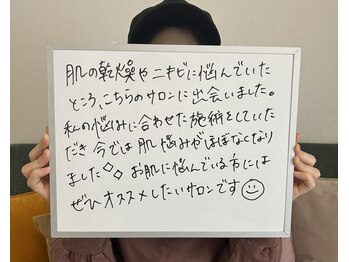 肌の乾燥やニキビに悩んでいた
ところ、こちらのサロンに出会いました。
私の悩みに合わせた施術をしていた
だき今では肌悩みがほぼなくなり
ました◇◇ お肌に悩んでいる方には
ぜひオススメしたいサロンです☺